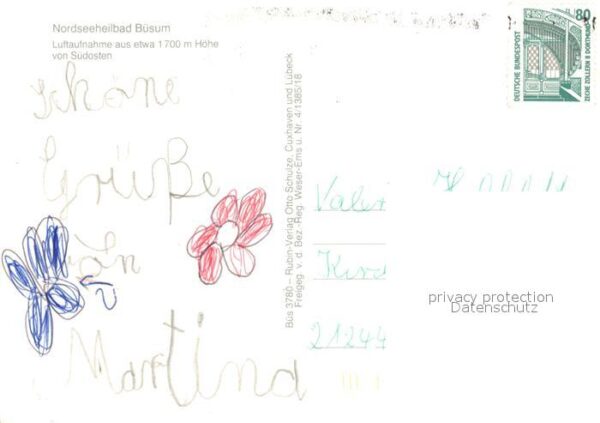 Nordseeheilbad Büsum
Luftaufnahme aus etwa 1700 m Höhe
von Südosten
schöne
Grüße
Martina
Büs 3780 – Rubin-Verlag Otto Schulze, Cuxhaven und Lübeck
Freigeg. v. d. Bez.-Reg. Weser-Ems u. Nr. 4/1385/18
80
DEUTSCHE BUNDESPOST
ZECHE ZOLLERN II DORTMUND
Valer
Kird
21244
privacy protection
Datenschutz